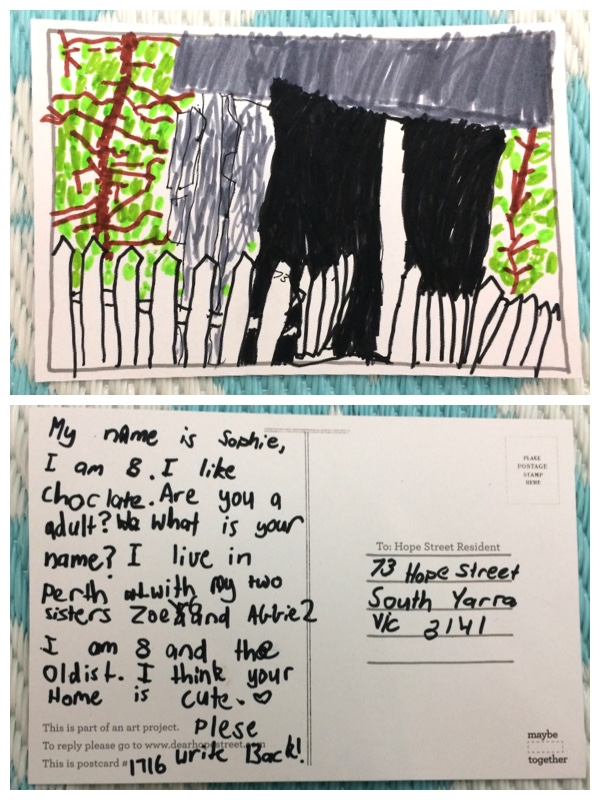 73
My nAme is Sophie,
I am 8. I like
choclate. Are you a
adult? What is your
name? I live in
Perth with my two
sisters Zoe and Abbie2
I am 8 and the
Oldist. I think your
Home is cute. ♡
Plese
write Back!
This is part of an art project.
To reply please go to www.dearhopestreet.com
This is postcard #1716
PLACE
POSTAGE
STAMP
HERE
To: Hope Street Resident
73 Hope Street
South Yarra
Vic 3141
maybe
together